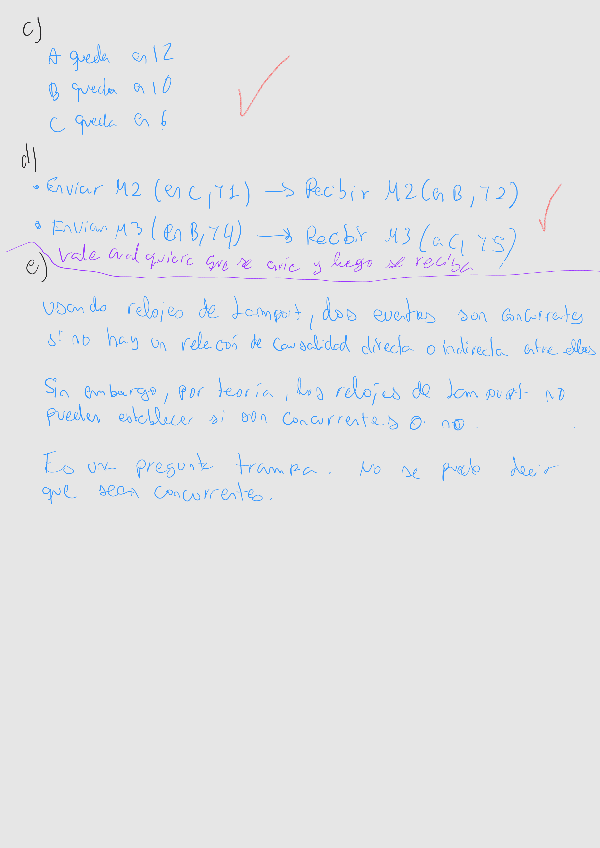 c)
A queda en 12
B queda en 10
C queda en 6
d)
• Enviar M2 (en C, T1) → Recibir M2 (en B, T2)
• Enviar M3 (en B, T4) → Recibir M3 (en C, T5)
Vale cualquiera que se envíe y luego se reciba
e)
Usando relojes de Lamport, dos eventos son concurrentes
si no hay un relación de causalidad directa o indirecta entre ellos
Sin embargo, por teoría, los relojes de Lamport no
pueden establecer si son concurrentes o no.
Es una pregunta trampa. No se puede decir
que sean concurrentes.